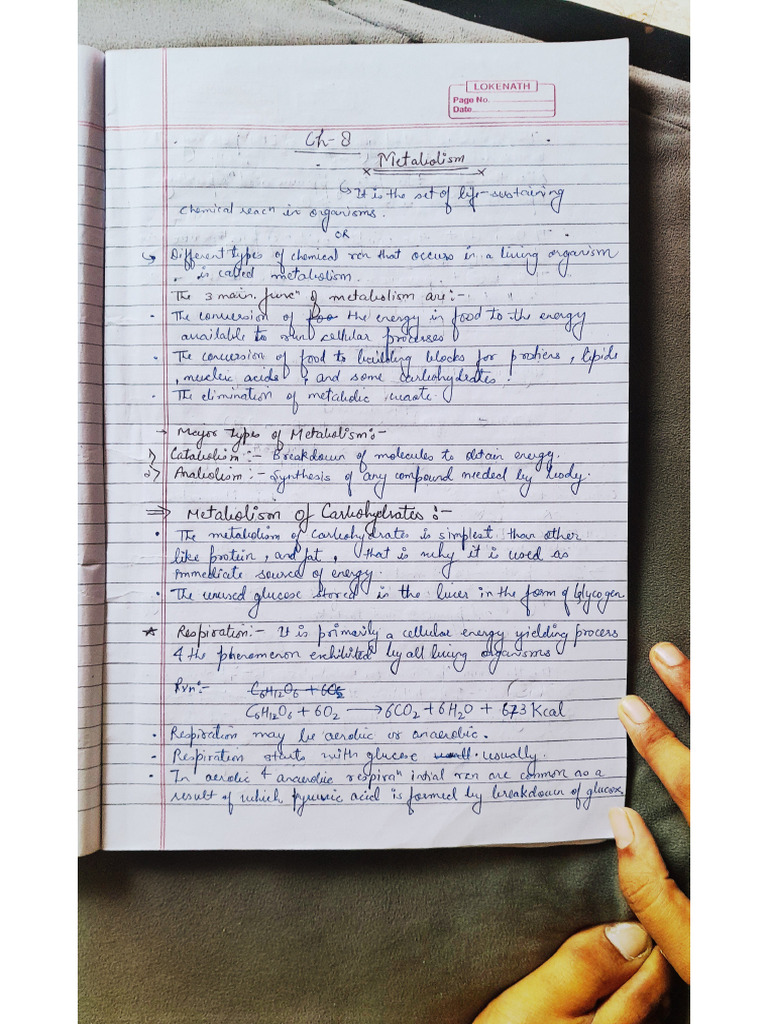 LOKENATH
Page No.
Date
Ch-8
Metabolism
↳ It is the set of life-sustaining
chemical reacⁿ in organisms.
OR
↳ Different types of chemical rxn that occurs in a living organism
is called metabolism.
The 3 main funcⁿ of metabolism are:-
· The conversion of foo the energy in food to the energy
available to run cellular processes
· The conversion of food to building blocks for protiens, lipids
, nucleic acids, and some carbohydrates.
· The elimination of metabolic waste.
→ Major types of Metabolism:-
1) Catabolism:- Breakdown of molecules to obtain energy.
2) Anabolism:- Synthesis of any compound needed by body.
⇒ Metabolism of Carbohydrates:-
· The metabolism of carbohydrates is simplest than other
like protein, and fat, that is why it is used as
immediate source of energy.
· The unused glucose stored in the liver in the form of Glycogen
★ Respiration:- It is primarily a cellular energy yielding process
& the phenomenon exhibited by all living organisms
Rxn:- C₆H₁₂O₆ + 6O₂
C₆H₁₂O₆ + 6O₂ → 6CO₂ + 6H₂O + 673 Kcal
· Respiration may be aerobic or anaerobic.
· Respiration starts with glucose usually.
· In aerobic & anaerobic respiraⁿ initial rxn are common as a
result of which pyruvic acid is formed by breakdown of glucose.